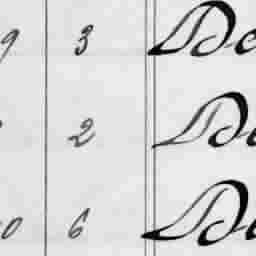 9 3 De
2 De
0 6 De